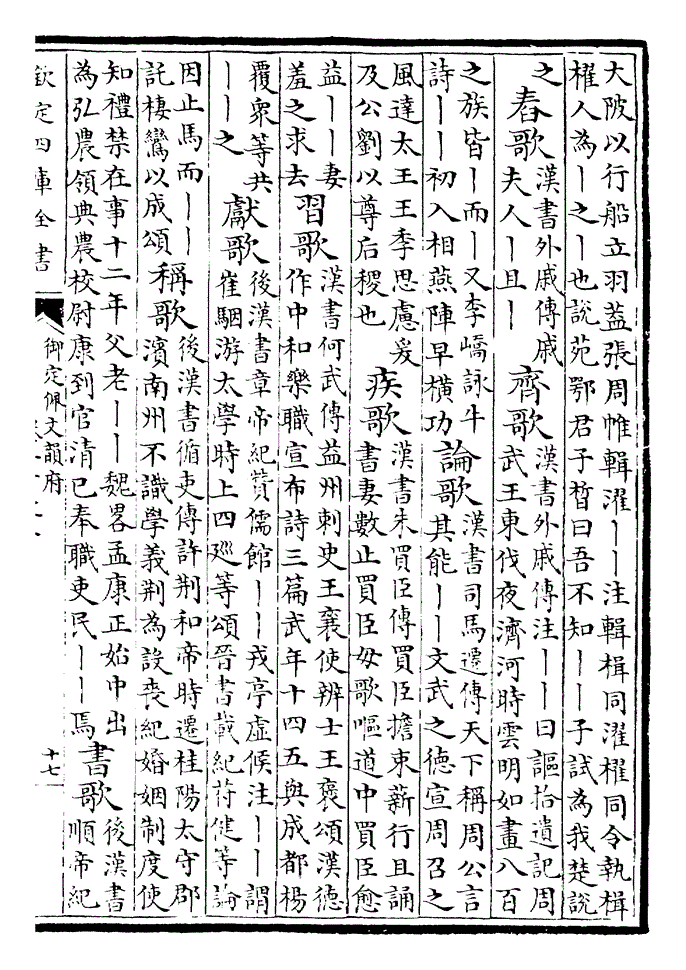 大陂以行船立羽蓋張周帷輯濯丨丨注輯楫同濯櫂同令執楫
櫂人為丨之丨也說苑鄂君子晳曰吾不知丨丨子試為我楚說
之
舂歌
漢書外戚傳戚
夫人丨且丨
齊歌
漢書外戚傳注丨丨曰謳拾遺記周
武王東伐夜濟河時雲明如晝八百
之族皆丨而丨又李嶠詠牛
詩丨丨初入相燕陣早橫功
論歌
漢書司馬遷傳天下稱周公言
其能丨丨文武之德宣周召之
風達太王王季思慮爰
及公劉以尊后稷也
疾歌
漢書朱買臣傳買臣擔束薪行且誦
書妻數止買臣毋歌嘔道中買臣愈
益丨丨妻
羞之求去
習歌
漢書何武傳益州刺史王襄使辨士王褒頌漢德
作中和樂職宣布詩三篇武年十四五與成都楊
覆衆等共
丨丨之
獻歌
後漢書章帝紀贊儒館丨丨戎亭虛候注丨丨謂
崔駰游太學時上四廵等頌晉書載紀苻健等論
因止馬而丨丨
託棲鸞以成頌
稱歌
後漢書循吏傳許荆和帝時遷桂陽太守郡
濱南州不識學義荆為設喪紀婚姻制度使
知禮禁在事十二年父老丨丨丨魏畧孟康正始中出
為弘農領典農校尉康到官清已奉職吏民丨丨焉
書歌
後漢書
順帝紀
欽定四庫全書
御定佩文韻府
十七